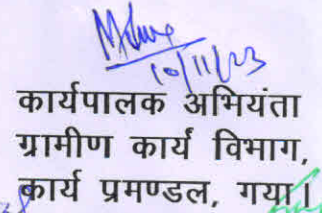 10/11/23
कार्यपालक अभियंता
ग्रामीण कार्य विभाग,
कार्य प्रमण्डल, गया।